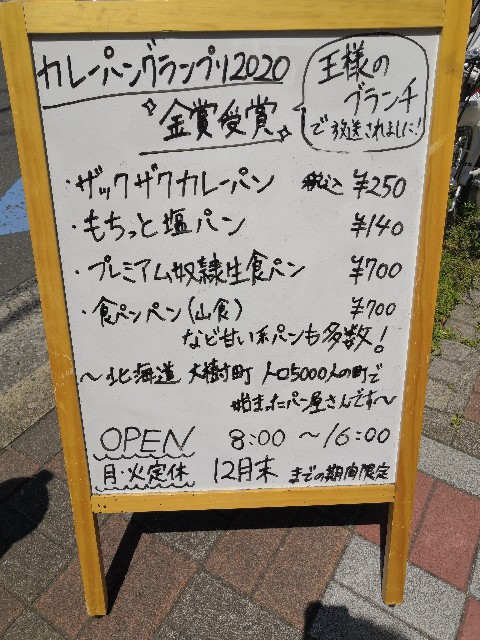 カレーパングランプリ2020
金賞受賞
王様の
ブランチ
で放送されました!
・ザックザクカレーパン 税込 ¥250
・もちっと塩パン ¥140
・プレミアム奴隷生食パン ¥700
・食パンパン(山食) ¥700
など甘い系パンも多数!
〜北海道 大樹町 人口5000人の町で
始まったパン屋さんです〜
OPEN 8:00 〜16:00
月・火定休 12月末 までの期間限定